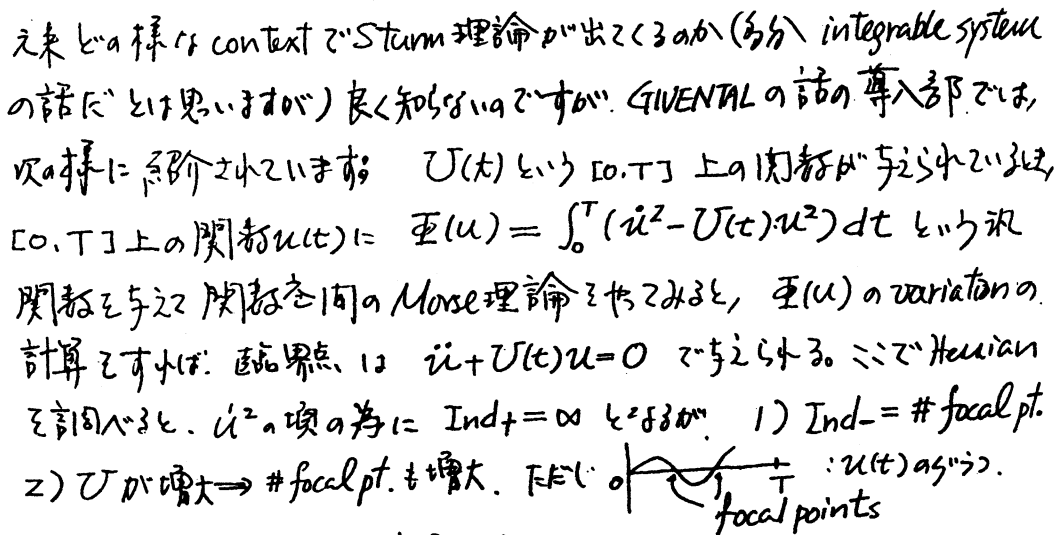 元来どの様な context で Sturm 理論が出てくるのか (多分 integrable system
の話だとは思いますが) 良く知らないのですが. GIVENTAL の話の導入部では,
次の様に紹介されています。 U(t) という [0,T] 上の関数が与えられているとき,
[0,T] 上の関数 u(t) に Φ(u) = ∫₀ᵀ (u̇² − U(t)·u²) dt という汎
関数を与えて 関数空間の Morse 理論をやってみると, Φ(u) の variation の
計算をすれば. 臨界点は ü + U(t)u = 0 で与えられる。ここで Hessian
を調べると、 u̇² の項の為に Ind₊ = ∞ となるが. 1) Ind₋ = # focal pt.
2) U が増大 ⇒ # focal pt. も増大. ただし 0 T : u(t) のグラフ.
focal points